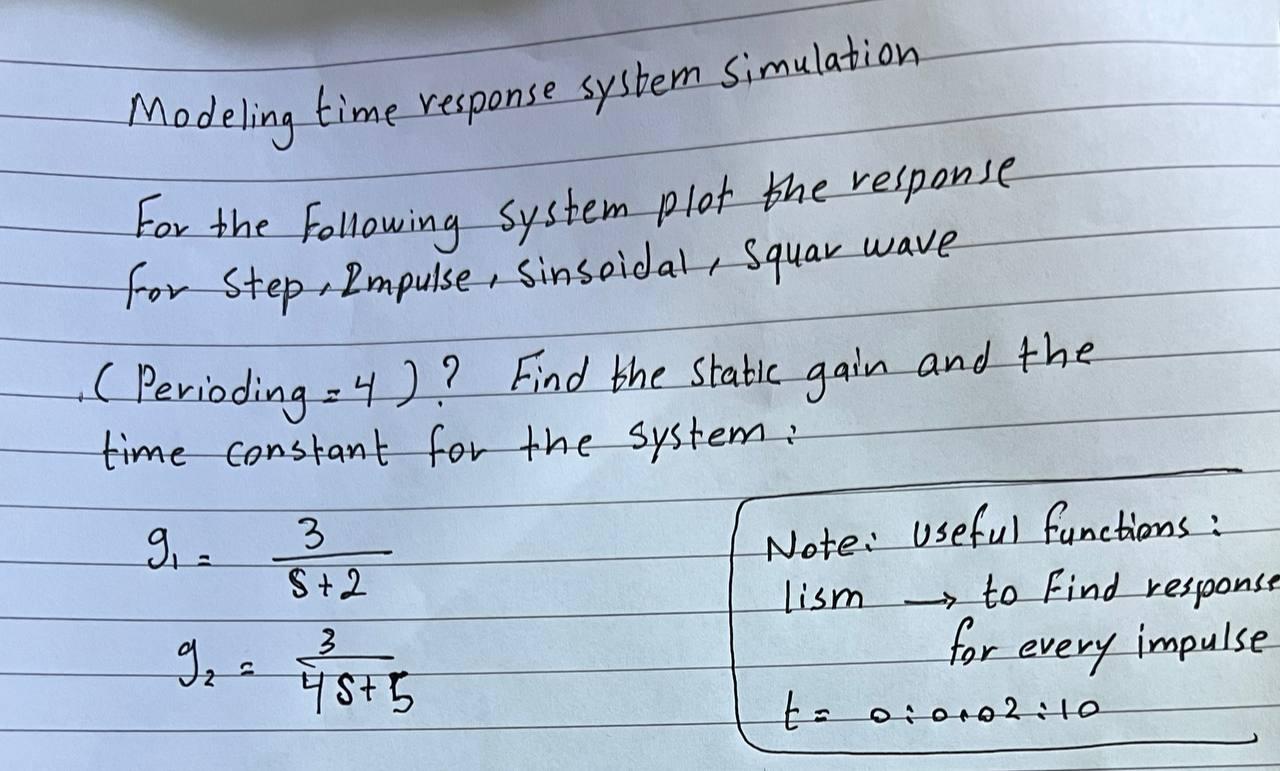 Modeling time response system simulation
For the Following system plot the response
for step, Impulse, Sinsoidal, squar wave
(Perioding = 4)? Find the static gain and the
time constant for the system:
g₁ = 3/(s+2)
g₂ = 3/(4s+5)
Note: Useful functions:
lism → to Find response
for every impulse
t = 0:0.02:10